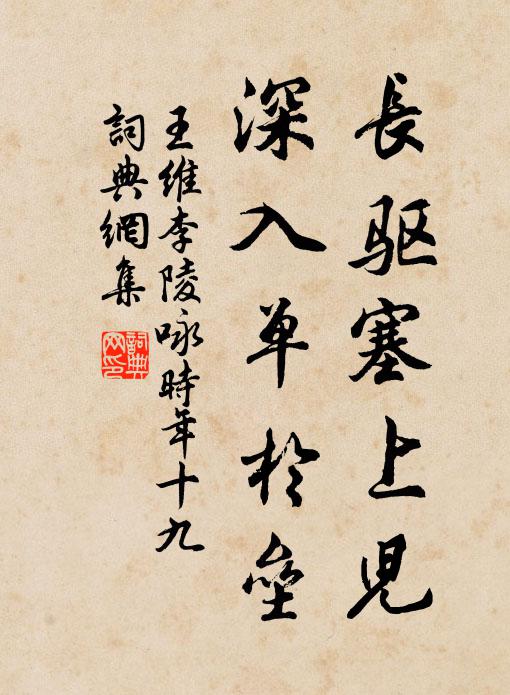 長驱塞上児
深入单於垒
王維李陵咏時年十九
詞典網集
詞典
网印